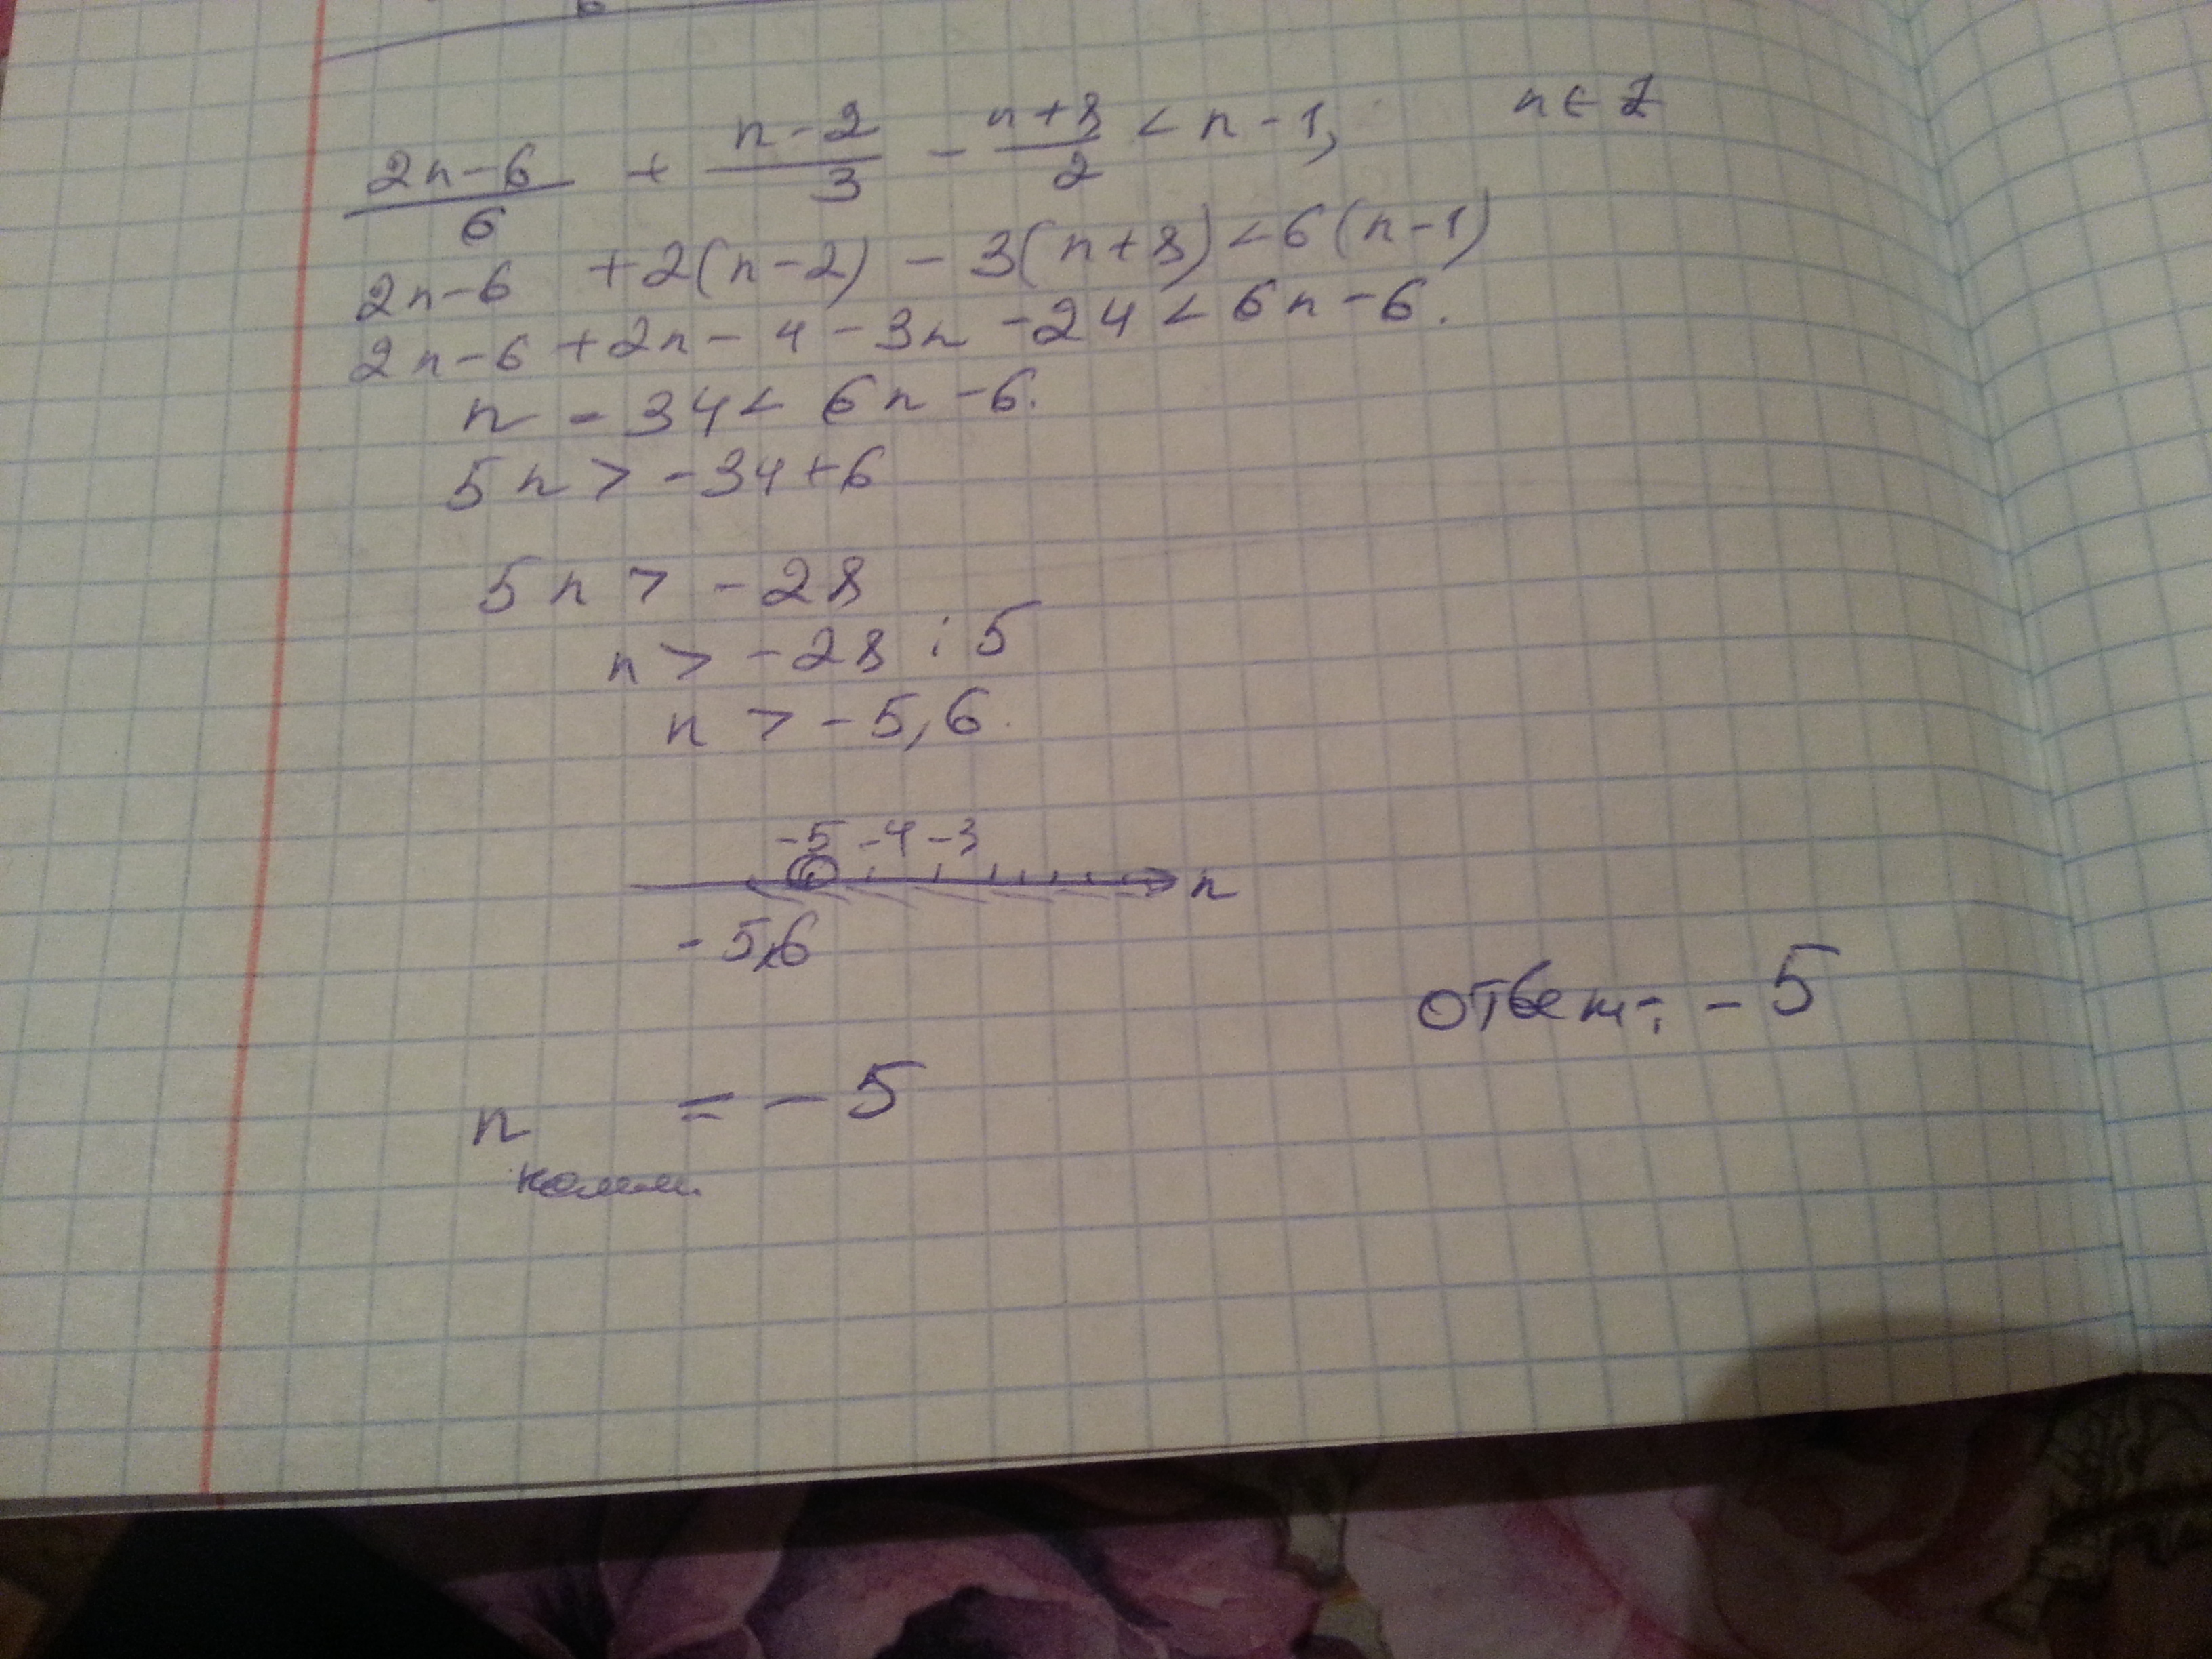 (2n-6)/6 + (n-2)/3 - (n+8)/2 < n-1, n ∈ Z
2n-6 +2(n-2) - 3(n+8) < 6(n-1)
2n-6+2n-4-3n-24 < 6n-6.
n - 34 < 6n-6.
5n > -34+6
5n > -28
n > -28 : 5
n > -5,6.
-5 -4 -3
n
-5,6
ответ: -5
n наим. = -5